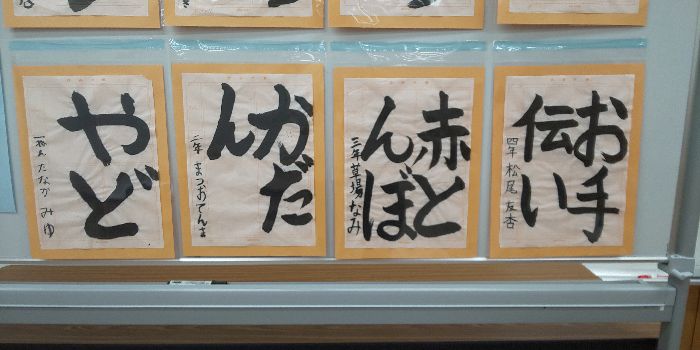 お手
伝い
四年 松尾友杏
赤と
んぼ
三年 草場なみ
かだ
ん
二年 まつおてんま
やど
一ねん たなか みゆ